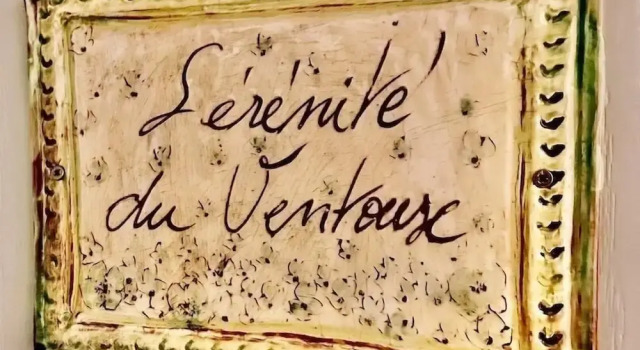 Sérénité
du Ventouse